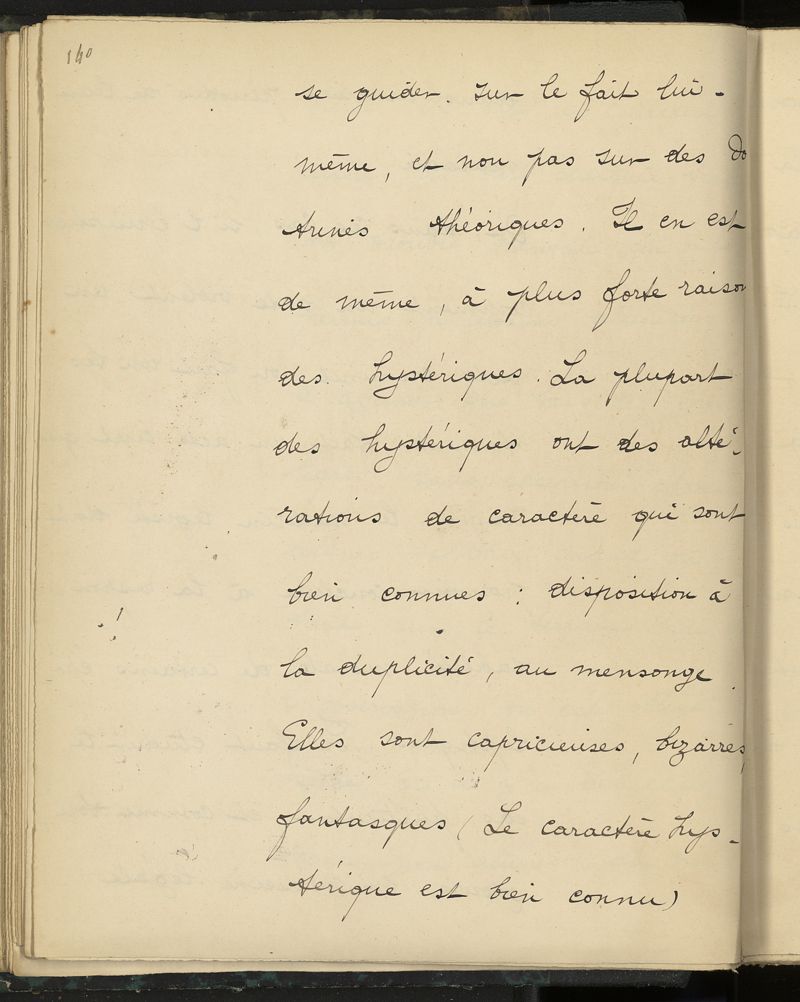 140
se guider sur le fait lui-
même, et non pas sur des do
trines théoriques. Il en est
de même, à plus forte raison
des hystériques. La plupart
des hystériques ont des alté-
rations de caractère qui sont
bien connues : disposition à
la duplicité, au mensonge.
Elles sont capricieuses, bizarres,
fantasques (Le caractère hys-
térique est bien connu)